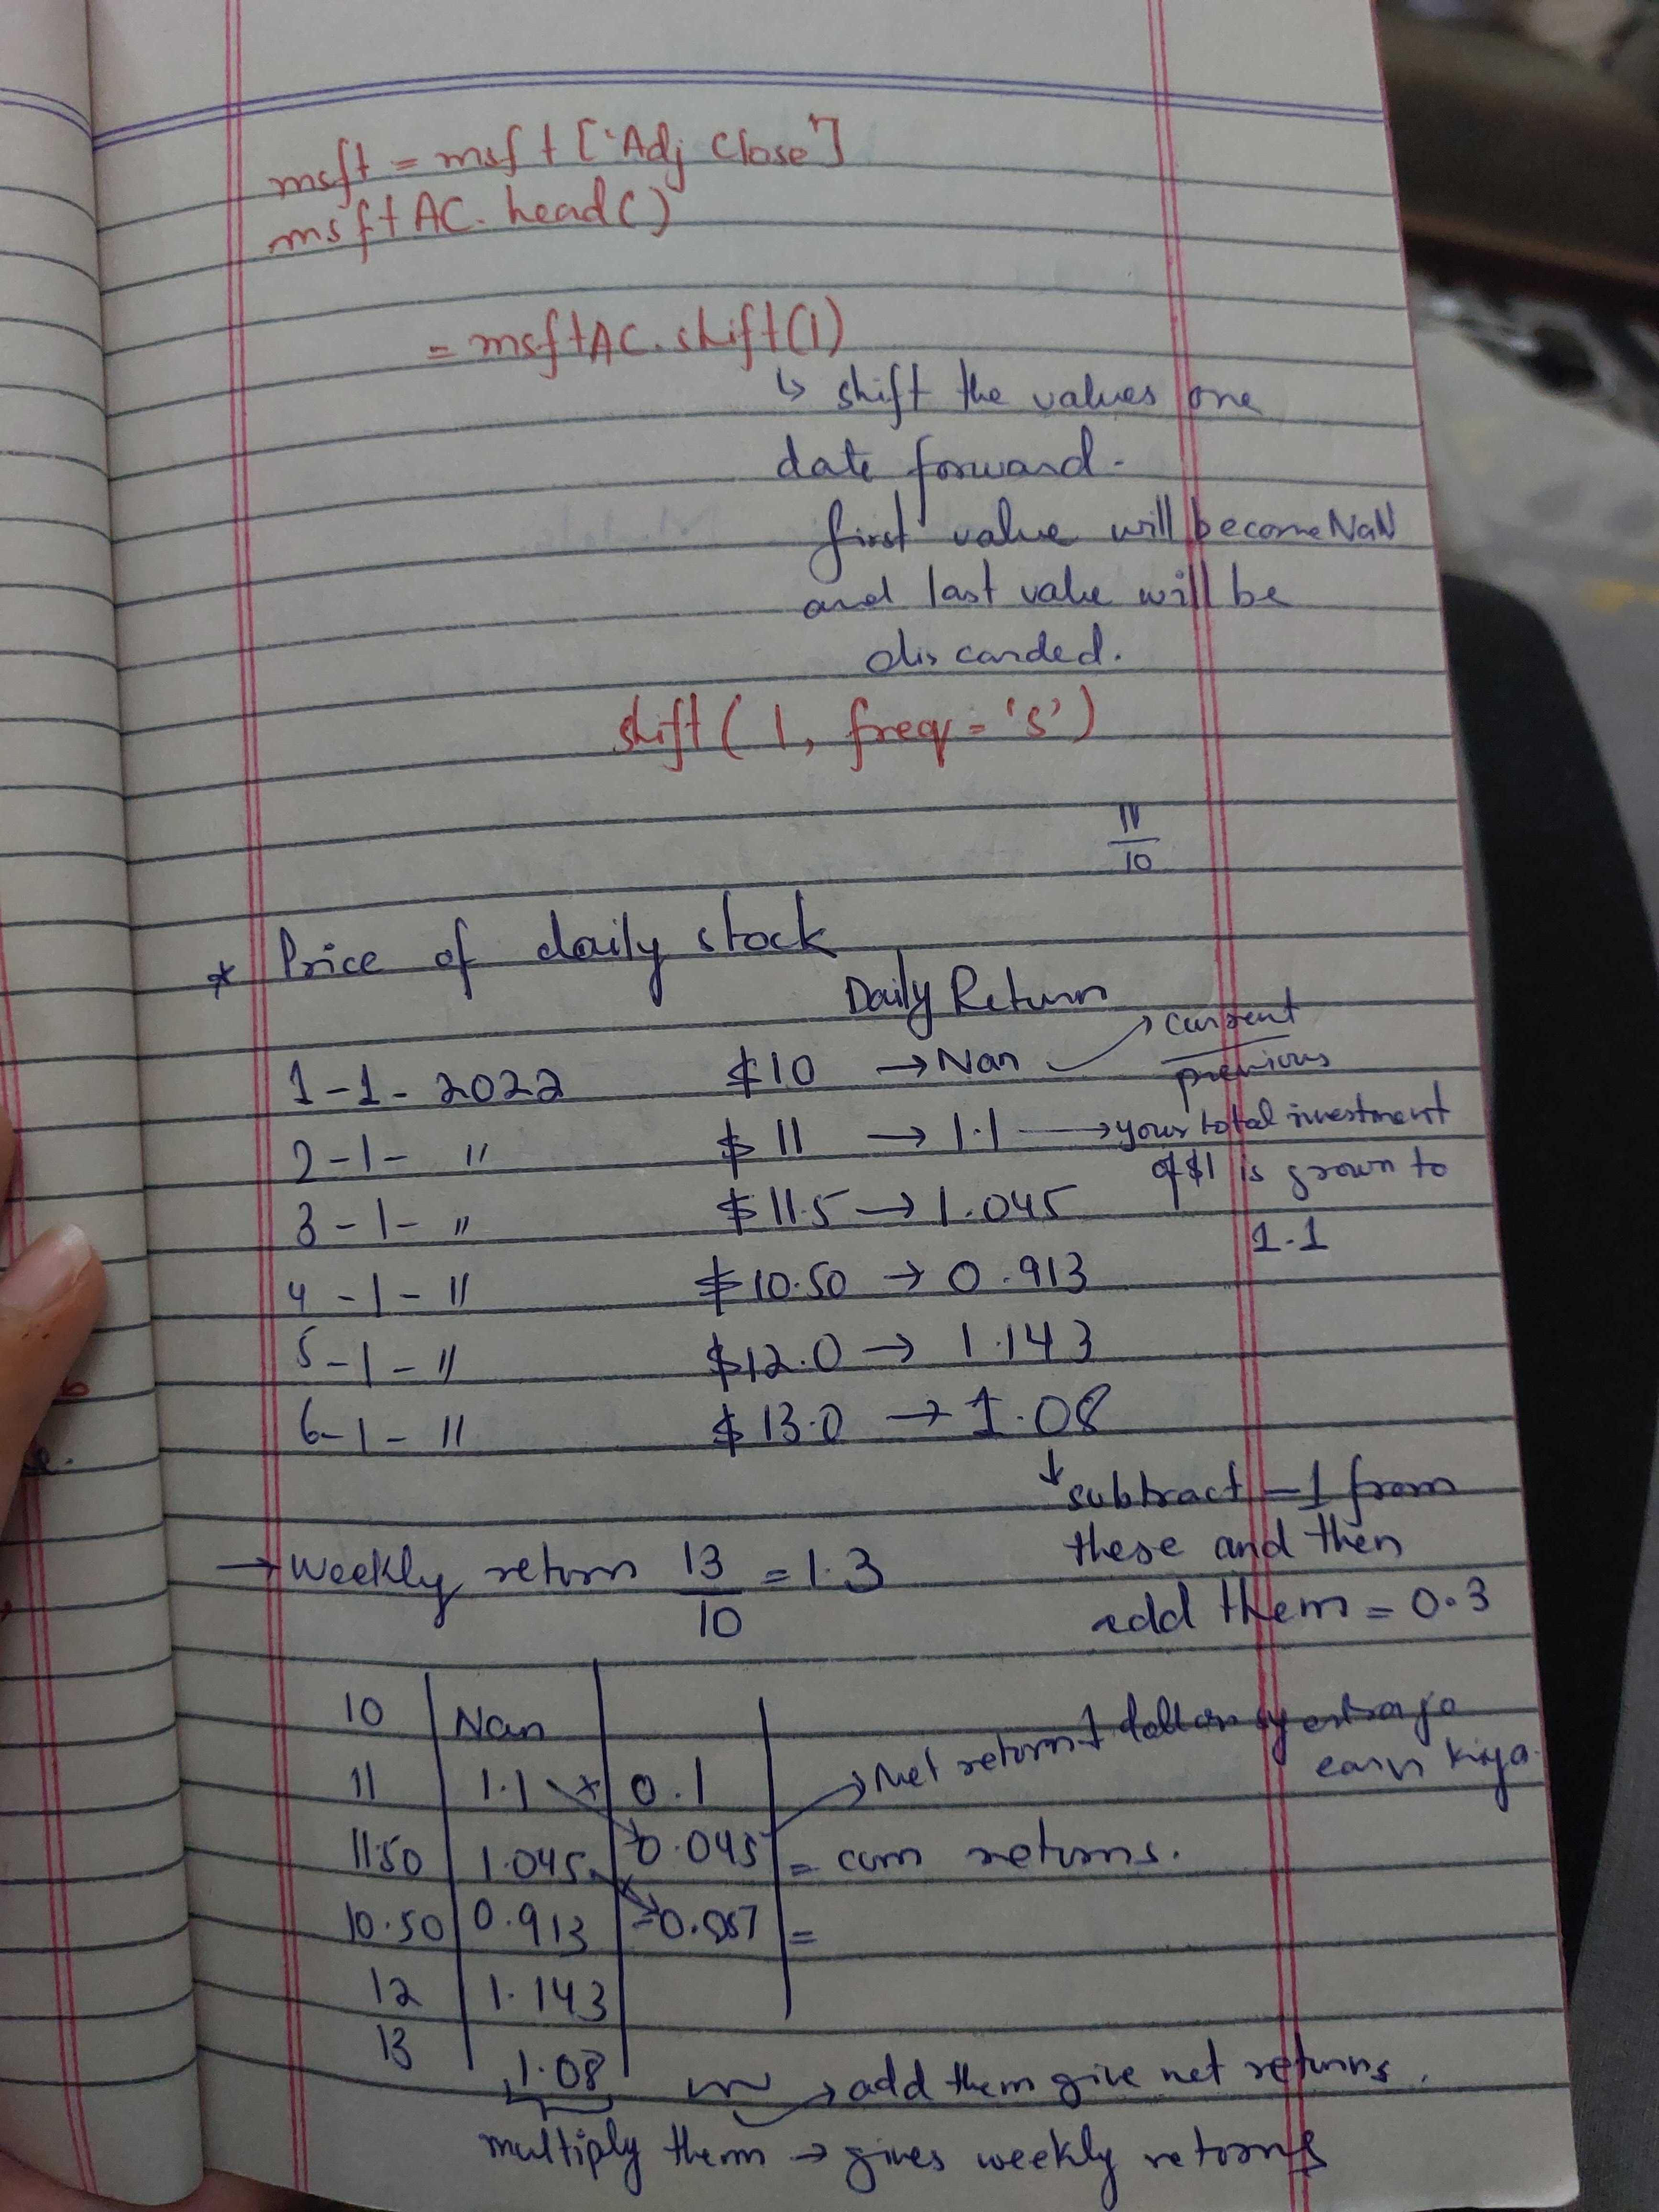 msft = msft ['Adj Close']
msftAC.head()
= msftAC.shift(1)
↳ shift the values one
date forward.
first value will become NaN
and last value will be
discarded.
shift( 1, freq = 's')
11
10
* Price of daily stock
Daily Return
1-1-2022 $10 → Nan → current
previous
2-1- " $11 → 1.1 → your total investment
of $1 is grown to
1.1
3-1- " $11.5 → 1.045
4-1- " $10.50 → 0.913
5-1- " $12.0 → 1.143
6-1- " $13.0 → 1.08
↓ subtract -1 from
these and then
add them = 0.3
→ Weekly return 13/10 = 1.3
10 Nan
11 1.1 × 0.1 → Net return 1 dollar extra jo
earn kiya.
11.50 1.045 × 0.045 = cum returns.
10.50 0.913 -0.087 =
12 1.143
13 1.08 → add them give net returns.
multiply them → gives weekly returns